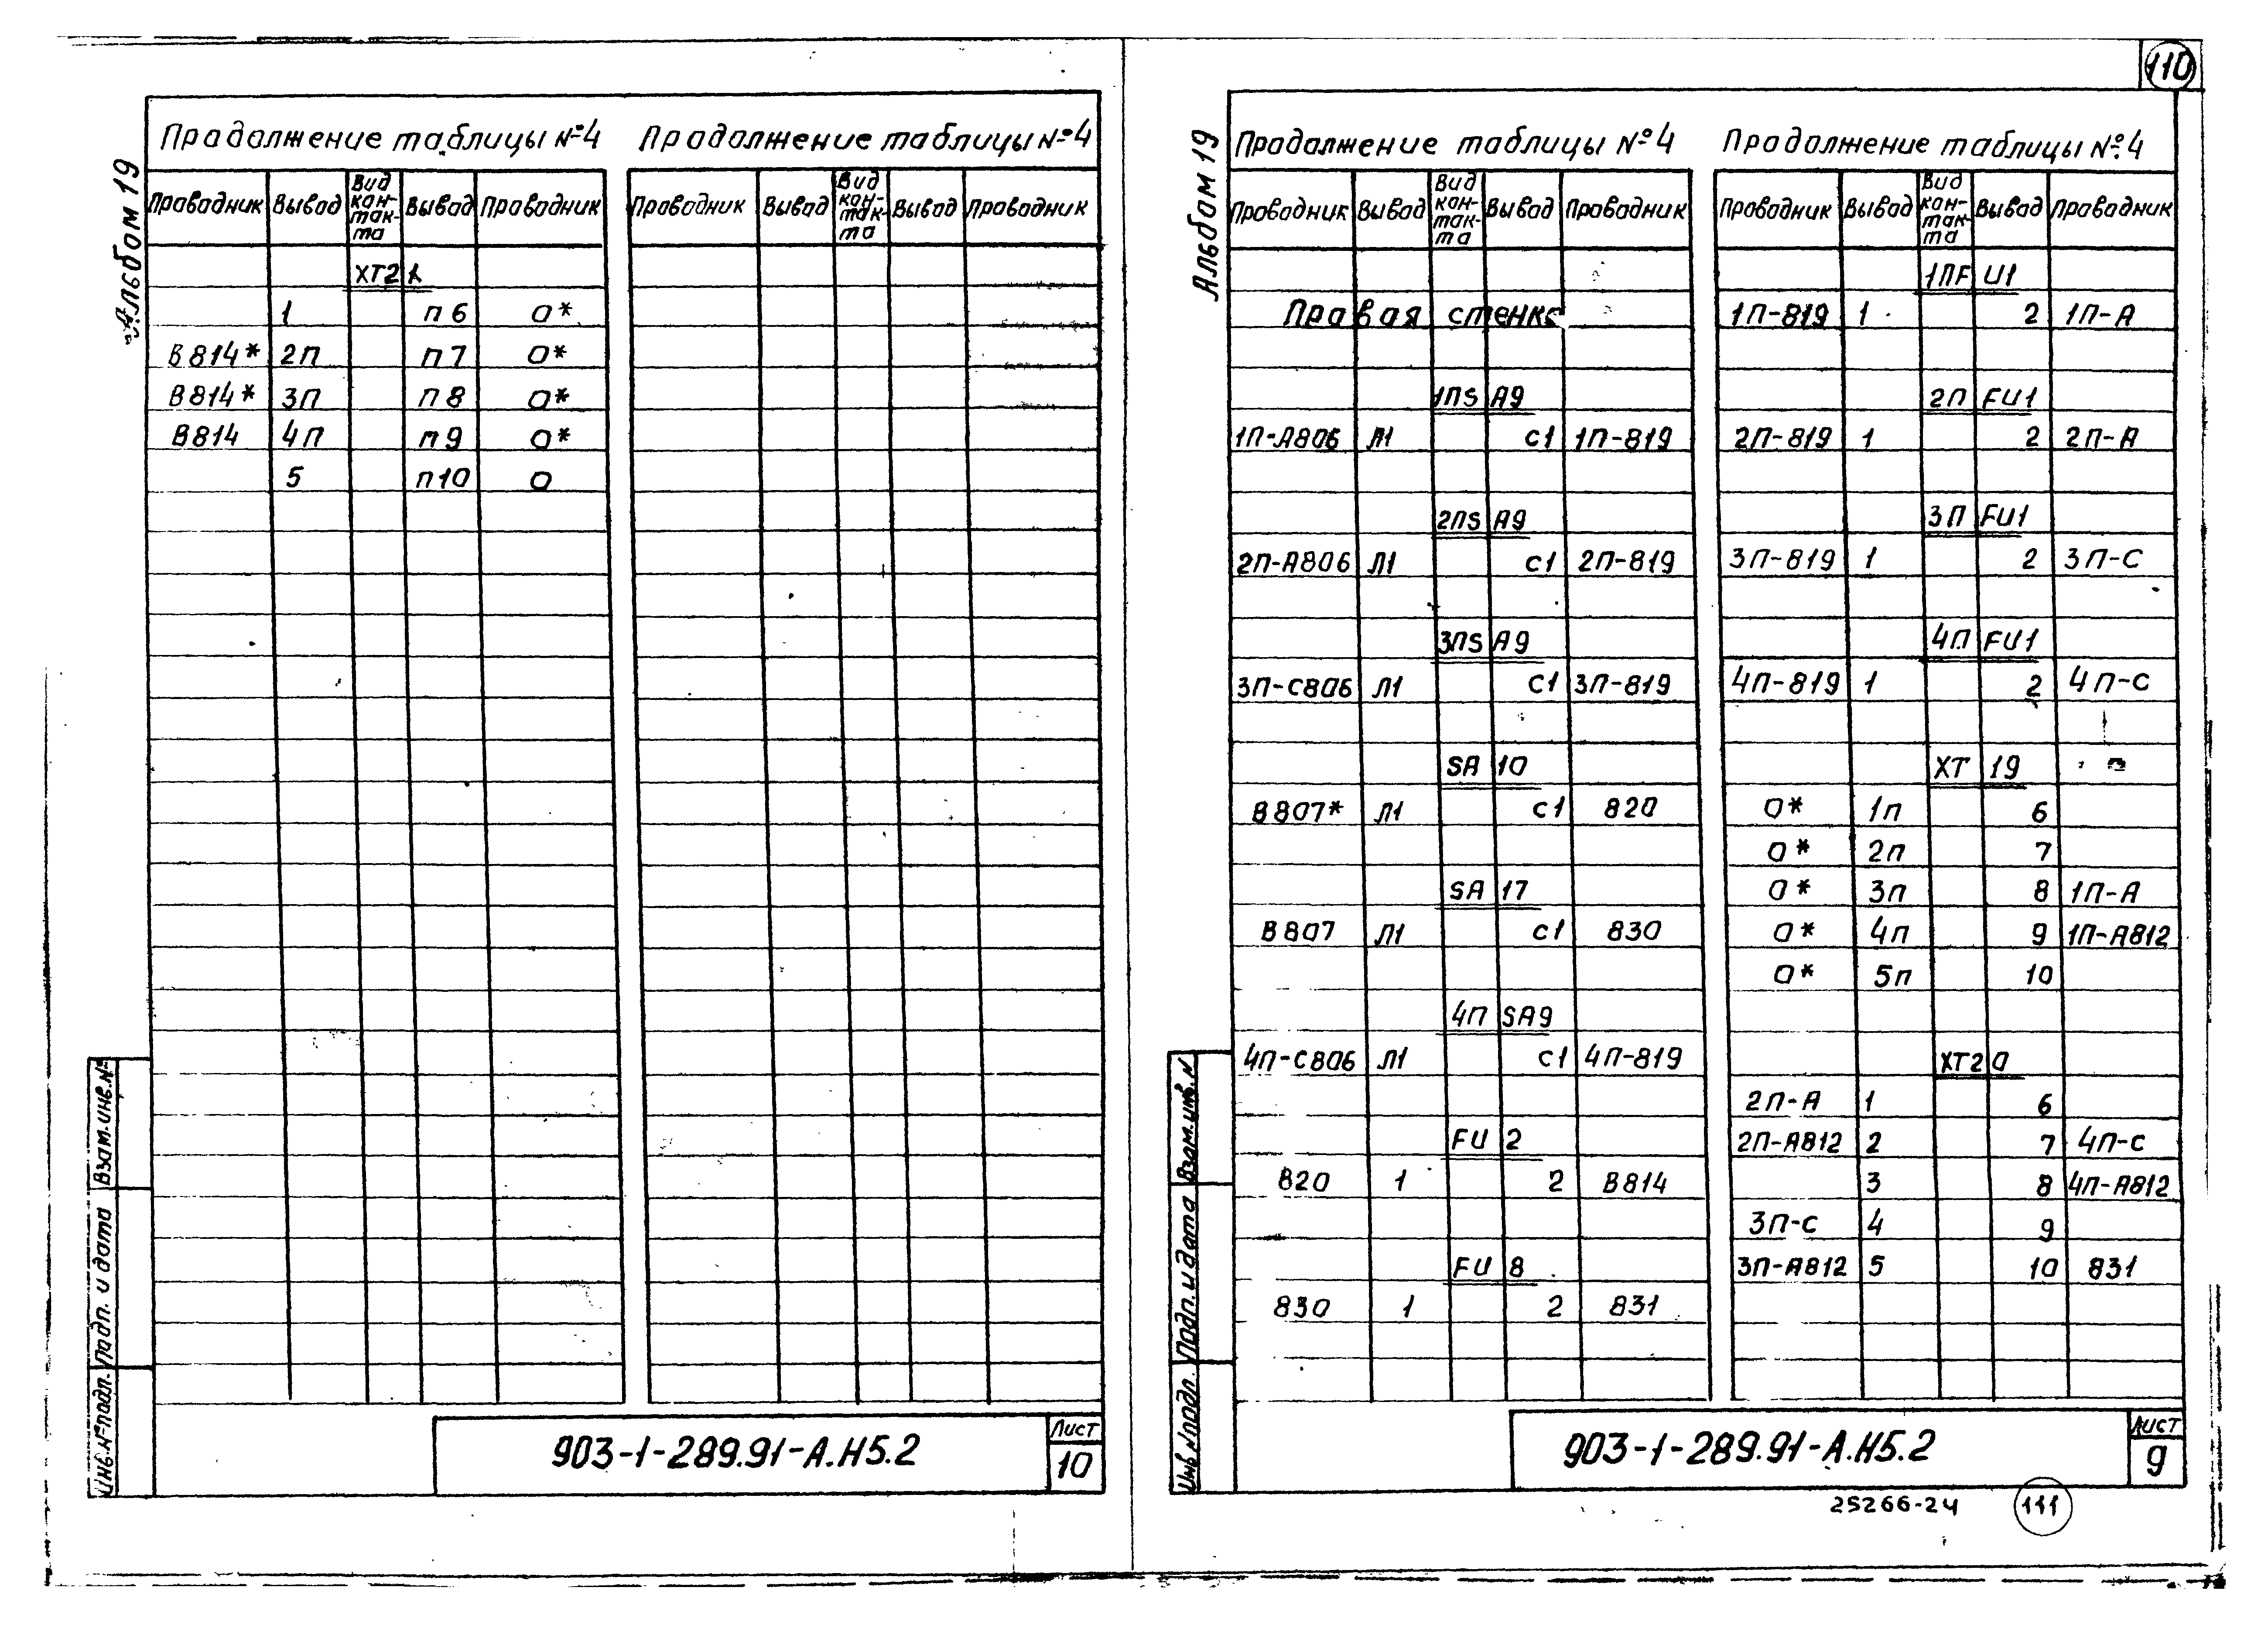 110
Альбом 19
Продолжение таблицы №4 Продолжение таблицы №4
Проводник Вывод Вид кон-так-та Вывод Проводник Проводник Вывод Вид кон-так-та Вывод Проводник
XT21
1 п6 0*
В814* 2п п7 0*
В814* 3п п8 0*
В814 4п п9 0*
5 п10 0
Взам.инв.№
Подп. и дата
Инв.№подл.
903-1-289.91-А.Н5.2
Лист
10
Альбом 19
Продолжение таблицы №4
Проводник Вывод Вид кон-так-та Вывод Проводник
Правая стенка
1ПSA9
1П-А806 Л1 с1 1П-819
2ПSA9
2П-А806 Л1 с1 2П-819
3ПSA9
3П-С806 Л1 с1 3П-819
SA10
В807* Л1 с1 820
SA17
В807 Л1 с1 830
4ПSA9
4П-С806 Л1 с1 4П-819
FU2
820 1 2 В814
FU8
830 1 2 831
Продолжение таблицы №4
Проводник Вывод Вид кон-так-та Вывод Проводник
1ПFU1
1П-819 1 2 1П-А
2ПFU1
2П-819 1 2 2П-А
3ПFU1
3П-819 1 2 3П-С
4ПFU1
4П-819 1 2 4П-С
XT19
0* 1п 6
0* 2п 7
0* 3п 8 1П-А
0* 4п 9 1П-А812
0* 5п 10
XT20
2П-А 1 6
2П-А812 2 7 4П-С
3 8 4П-А812
3П-С 4 9
3П-А812 5 10 831
Взам.инв.N
Подп. и дата
Инв.Nподл.
903-1-289.91-А.Н5.2
Лист
9
25266-24 111